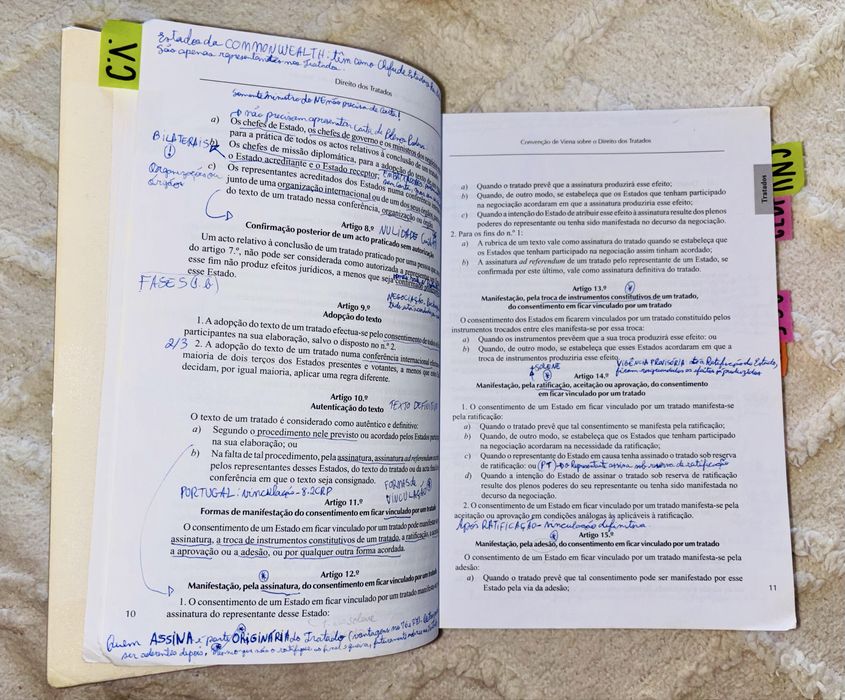 C.V.
Estados da COMMONWEALTH: têm como Chefe de Estado a
São apenas representantes nos Tratados.
Direito dos Tratados
Somente ministro do NE não precisa de Carta!
não precisam apresentar Carta de Plenos Poderes
a) Os chefes de Estado, os chefes de governo e os ministros dos negócios
para a prática de todos os actos relativos à conclusão de um
BILATERAIS
b) Os chefes de missão diplomática, para a adopção do texto de um
o Estado acreditante e o Estado receptor;
Organizações ou
órgãos
c) Os representantes acreditados dos Estados numa conferência
junto de uma organização internacional ou de um dos seus órgãos, para
do texto de um tratado nessa conferência, organização ou órgão.
Artigo 8.º NULIDADE
Confirmação posterior de um acto praticado sem autorização
Um acto relativo à conclusão de um tratado praticado por uma pessoa que
do artigo 7.º, não pode ser considerada como autorizada a representar um
esse fim não produz efeitos jurídicos, a menos que seja confirmado
esse Estado.
FASES
NEGOCIAÇÃO
Artigo 9.º
Adopção do texto
1. A adopção do texto de um tratado efectua-se pelo consentimento de todos
participantes na sua elaboração, salvo o disposto no n.º 2.
2/3 2. A adopção do texto de um tratado numa conferência internacional
maioria de dois terços dos Estados presentes e votantes, a menos que
decidam, por igual maioria, aplicar uma regra diferente.
Artigo 10.º
Autenticação do texto TEXTO DEFINITIVO
O texto de um tratado é considerado como autêntico e definitivo:
a) Segundo o procedimento nele previsto ou acordado pelos Estados
na sua elaboração; ou
b) Na falta de tal procedimento, pela assinatura, assinatura ad referendum
pelos representantes desses Estados, do texto do tratado ou da acta final
conferência em que o texto seja consignado.
FORMAS DE
VINCULAÇÃO
PORTUGAL: vinculação - 8.2CRP
Artigo 11.º
Formas de manifestação do consentimento em ficar vinculado por um tratado
O consentimento de um Estado em ficar vinculado por um tratado pode
assinatura, a troca de instrumentos constitutivos de um tratado, a ratificação, a
a aprovação ou a adesão, ou por qualquer outra forma acordada.
Artigo 12.º
Manifestação, pela assinatura, do consentimento em ficar vinculado por um tratado
1. O consentimento de um Estado em ficar vinculado por um tratado manifesta-se
assinatura do representante desse Estado:
10
Quem ASSINA é parte ORIGINÁRIA do Tratado (vantagens
ser aderentes depois.
Convenção de Viena sobre o Direito dos Tratados
a) Quando o tratado prevê que a assinatura produzirá esse efeito;
b) Quando, de outro modo, se estabeleça que os Estados que tenham participado
na negociação acordaram em que a assinatura produziria esse efeito;
c) Quando a intenção do Estado de atribuir esse efeito à assinatura resulte dos plenos
poderes do representante ou tenha sido manifestada no decurso da negociação.
2. Para os fins do n.º 1:
a) A rubrica de um texto vale como assinatura do tratado quando se estabeleça que
os Estados que tenham participado na negociação assim tinham acordado;
b) A assinatura ad referendum de um tratado pelo representante de um Estado, se
confirmada por este último, vale como assinatura definitiva do tratado.
Artigo 13.º
Manifestação, pela troca de instrumentos constitutivos de um tratado,
do consentimento em ficar vinculado por um tratado
O consentimento dos Estados em ficarem vinculados por um tratado constituído pelos
instrumentos trocados entre eles manifesta-se por essa troca:
a) Quando os instrumentos prevêem que a sua troca produzirá esse efeito; ou
b) Quando, de outro modo, se estabeleça que esses Estados acordaram em que a
troca de instrumentos produziria esse efeito.
VIGÊNCIA PROVISÓRIA até à Ratificação do Estado,
ficam resguardados os efeitos já produzidos
SOLENE
Artigo 14.º
Manifestação, pela ratificação, aceitação ou aprovação, do consentimento
em ficar vinculado por um tratado
1. O consentimento de um Estado em ficar vinculado por um tratado manifesta-se
pela ratificação:
a) Quando o tratado prevê que tal consentimento se manifesta pela ratificação;
b) Quando, de outro modo, se estabeleça que os Estados que tenham participado
na negociação acordaram na necessidade da ratificação;
c) Quando o representante do Estado em causa tenha assinado o tratado sob reserva
de ratificação: ou (PT) o representante assina sob reserva de ratificação
d) Quando a intenção do Estado de assinar o tratado sob reserva de ratificação
resulte dos plenos poderes do seu representante ou tenha sido manifestada no
decurso da negociação.
2. O consentimento de um Estado em ficar vinculado por um tratado manifesta-se pela
aceitação ou aprovação em condições análogas às aplicáveis à ratificação.
Após RATIFICAÇÃO - vinculação definitiva.
Artigo 15.º
Manifestação, pela adesão, do consentimento em ficar vinculado por um tratado
O consentimento de um Estado em ficar vinculado por um tratado manifesta-se pela
adesão:
a) Quando o tratado prevê que tal consentimento pode ser manifestado por esse
Estado pela via da adesão;
11
Tratados
CNU